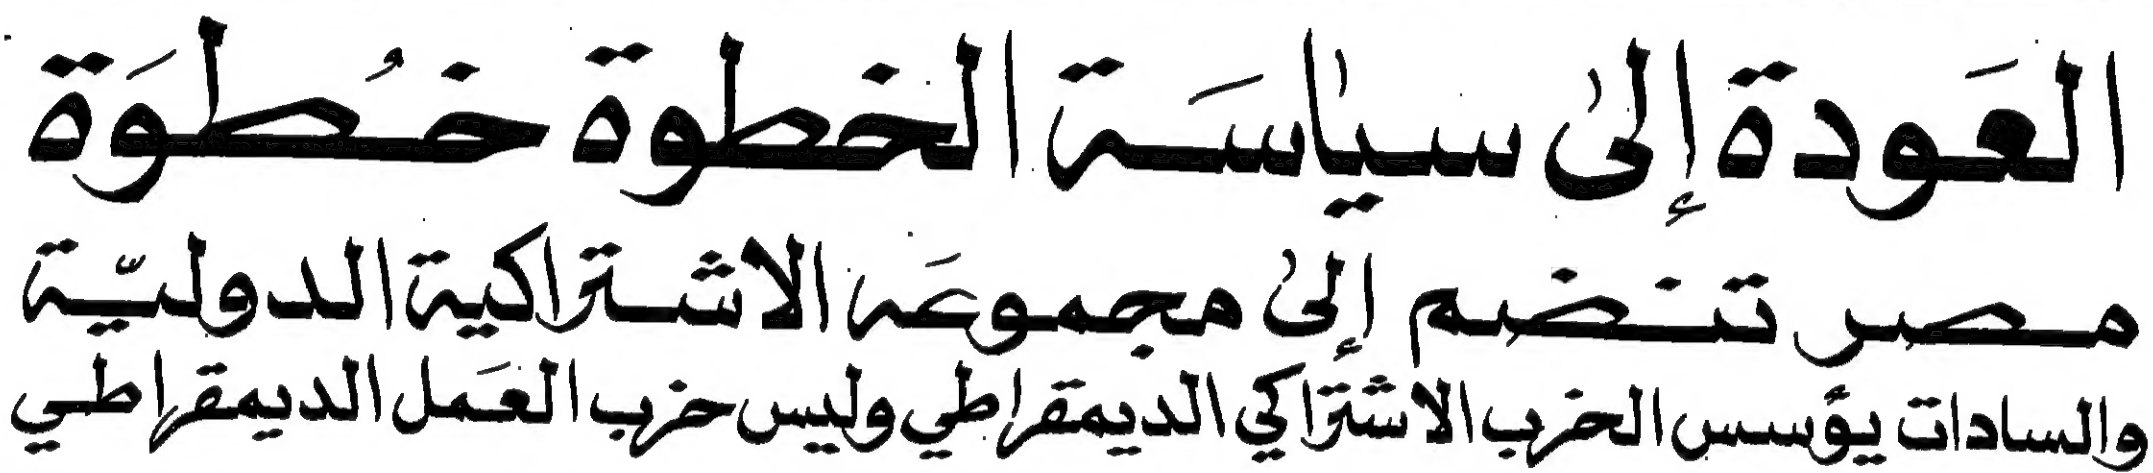 العَودة إلىٰ سياسَة الخطوة خُطوَة
مصر تنضم إلىٰ مجموعَه الاشتراكية الدوليّة
والسادات يؤسس الحزب الاشتراكي الديمقراطي وليس حزب العَمل الديمقراطي